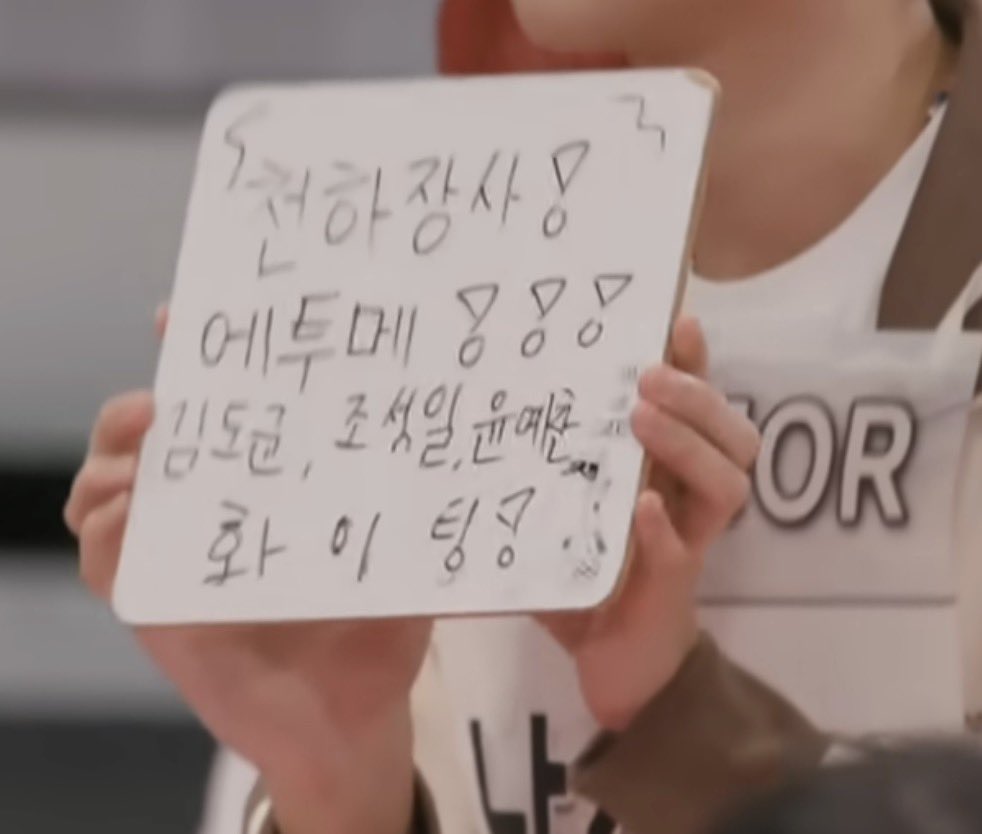 천하장사!
에투메 !!!
김도균, 조석일, 윤예준
화이팅!
OR